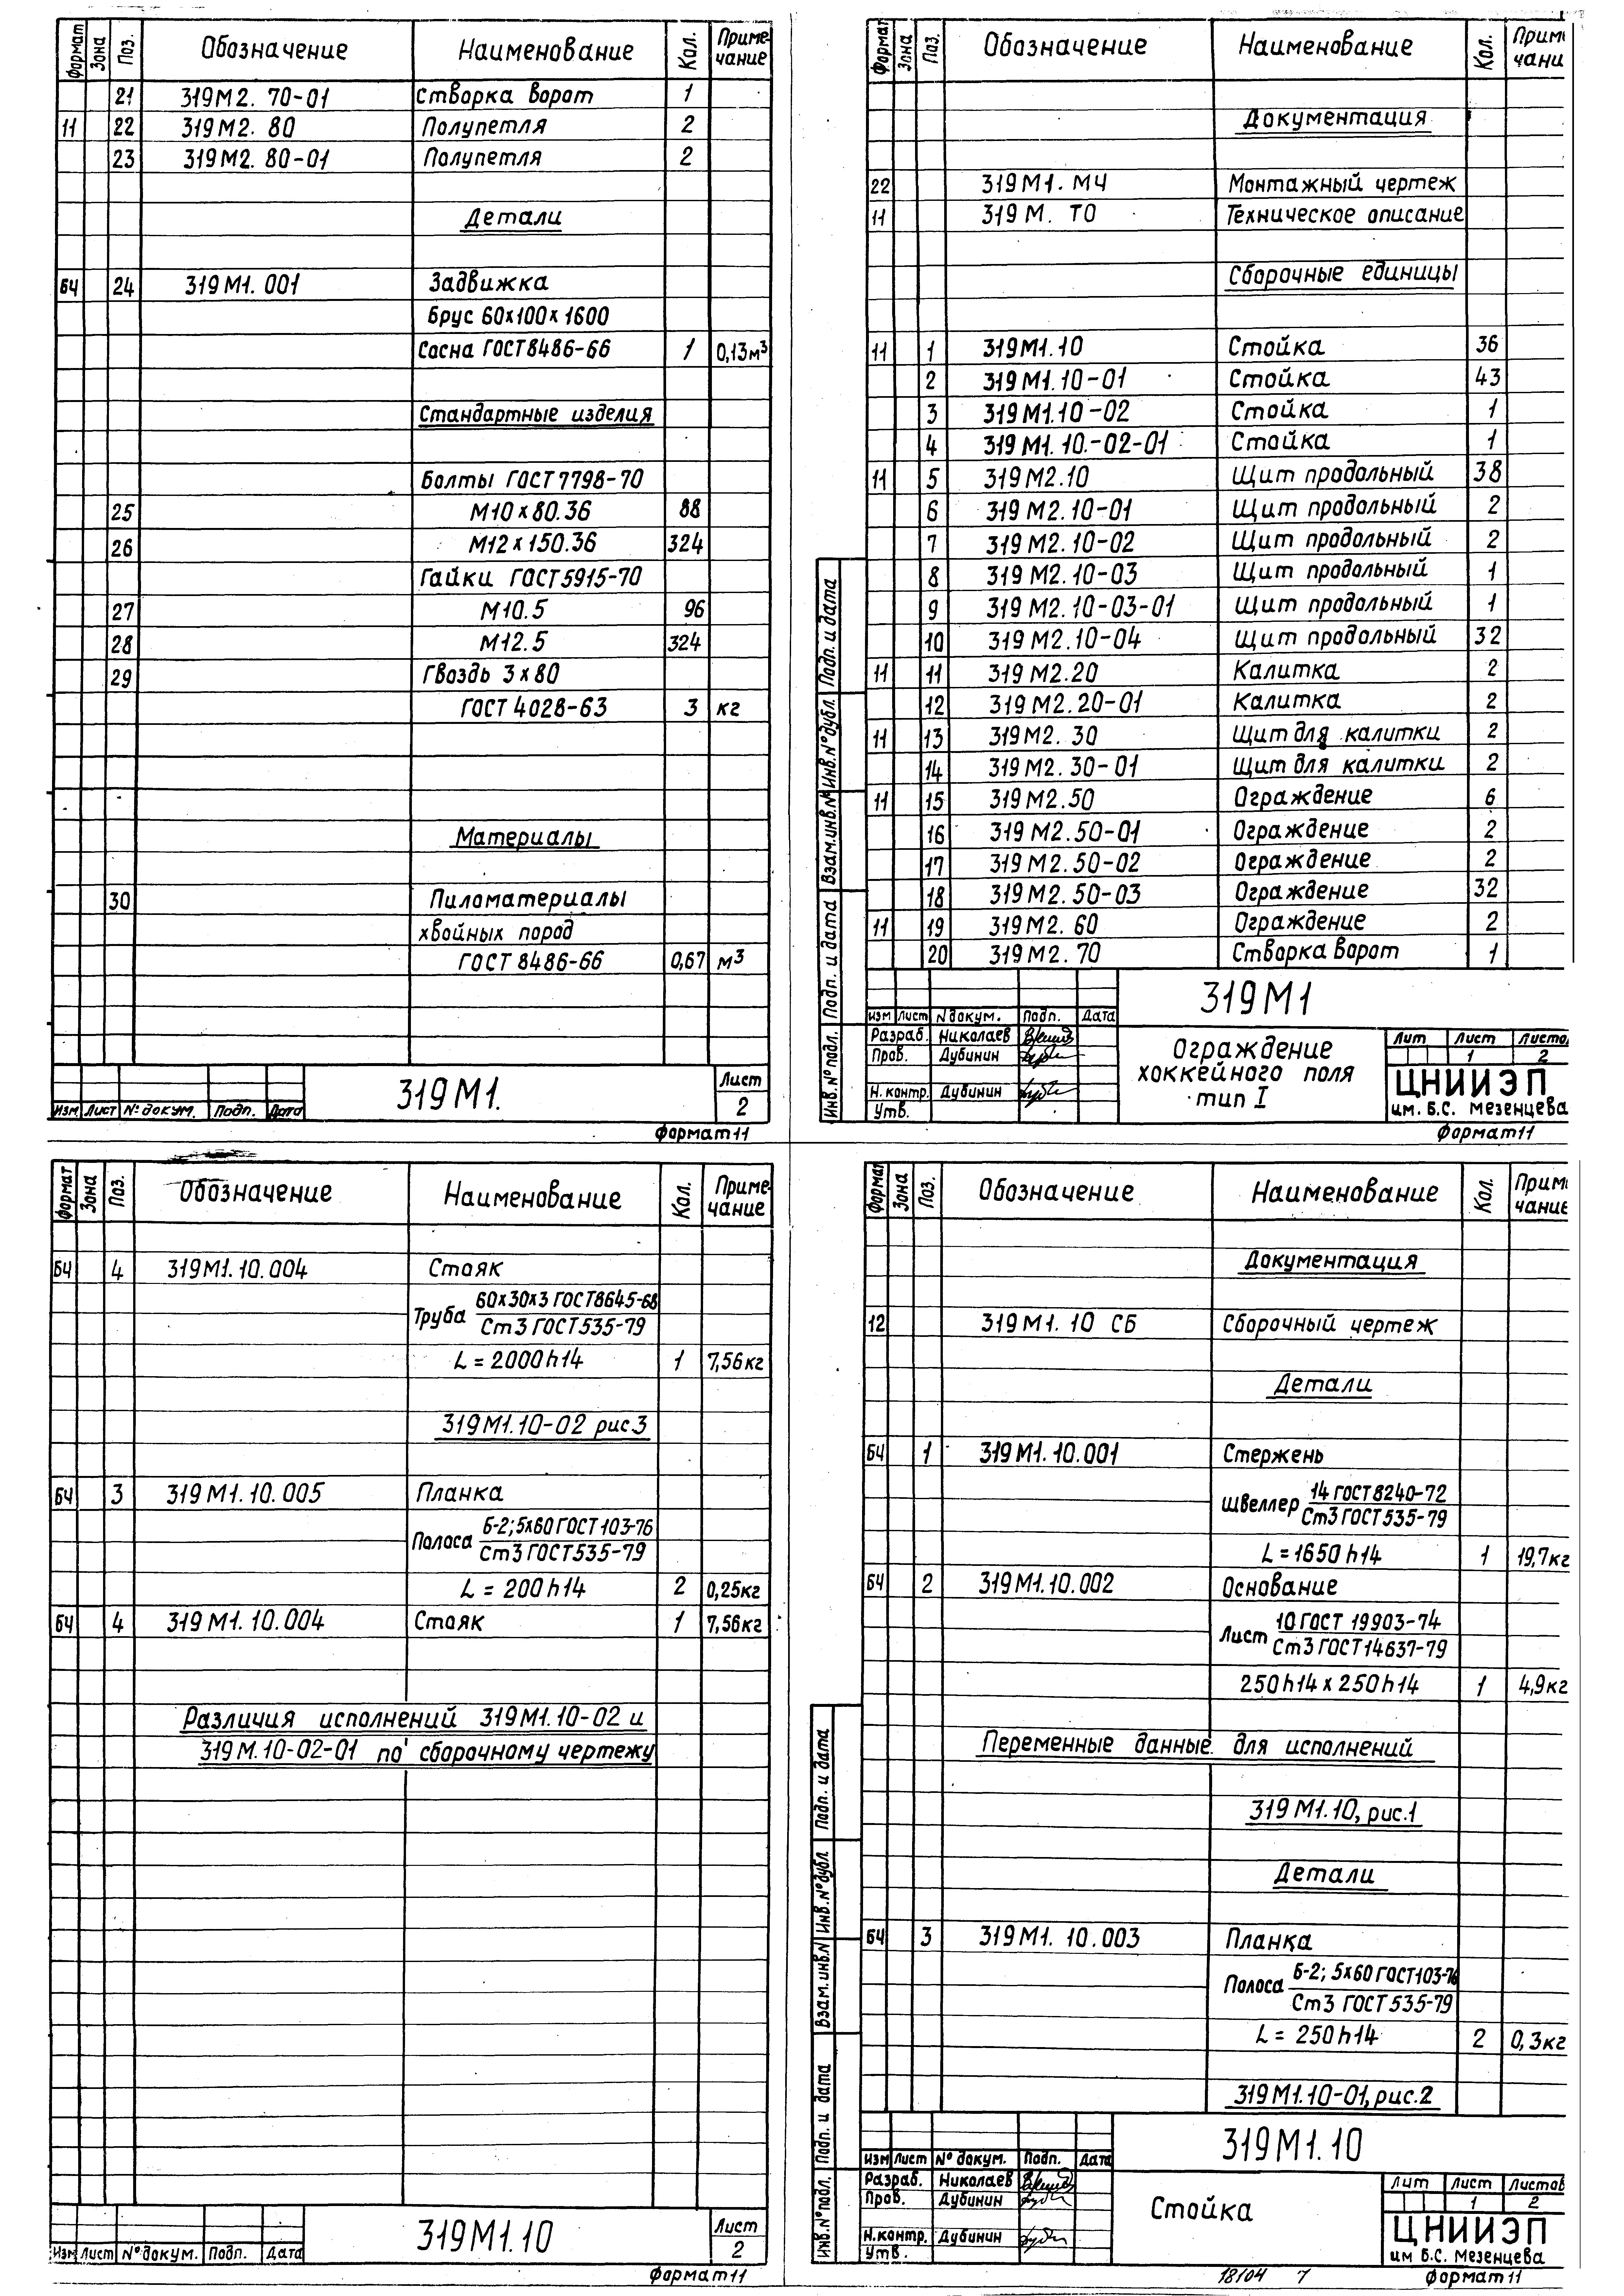 Формат Зона Поз. Обозначение Наименование Кол. Приме-чание
21 319М2. 70-01 Створка ворот 1
11 22 319М2. 80 Полупетля 2
23 319М2. 80-01 Полупетля 2
Детали
БЧ 24 319М1. 001 Задвижка
Брус 60х100х1600
Сосна ГОСТ8486-66 1 0,13м³
Стандартные изделия
Болты ГОСТ7798-70
25 М10х80.36 88
26 М12х150.36 324
Гайки ГОСТ5915-70
27 М10.5 96
28 М12.5 324
29 Гвоздь 3х80
ГОСТ 4028-63 3 кг
Материалы
30 Пиломатериалы
хвойных пород
ГОСТ 8486-66 0,67 м³
Изм Лист № докум. Подп. Дата
319М1.
Лист
2
Формат11
Формат Зона Поз. Обозначение Наименование Кол. Прим чани
Документация
22 319М1. МЧ Монтажный чертеж
11 319М. ТО Техническое описание
Сборочные единицы
11 1 319М1.10 Стойка 36
2 319М1.10-01 Стойка 43
3 319М1.10-02 Стойка 1
4 319М1.10.-02-01 Стойка 1
11 5 319М2.10 Щит продольный 38
6 319М2.10-01 Щит продольный 2
7 319М2.10-02 Щит продольный 2
8 319М2.10-03 Щит продольный 1
9 319М2.10-03-01 Щит продольный 1
10 319М2.10-04 Щит продольный 32
11 11 319М2.20 Калитка 2
12 319М2.20-01 Калитка 2
11 13 319М2. 30 Щит для калитки 2
14 319М2. 30-01 Щит для калитки 2
11 15 319М2.50 Ограждение 6
16 319М2.50-01 Ограждение 2
17 319М2.50-02 Ограждение 2
18 319М2.50-03 Ограждение 32
11 19 319М2. 60 Ограждение 2
20 319М2. 70 Створка ворот 1
Инв.№подл. Подп. и дата Взам.инв.№ Инв.№дубл. Подп. и дата
319М1
Изм Лист N докум. Подп. Дата
Разраб. Николаев
Пров. Дубинин
Н.контр. Дубинин
Утв.
Ограждение
хоккейного поля
тип I
Лит Лист Листов
1 2
ЦНИИЭП
им. Б.С. Мезенцева
Формат11
Формат Зона Поз. Обозначение Наименование Кол. Приме-чание
БЧ 4 319М1.10.004 Стояк
Труба 60х30х3 ГОСТ8645-68
Ст3 ГОСТ535-79
L = 2000h14 1 7,56кг
319М1.10-02 рис3
БЧ 3 319М1.10.005 Планка
Полоса Б-2;5х60 ГОСТ103-76
Ст3 ГОСТ535-79
L = 200h14 2 0,25кг
БЧ 4 319М1.10.004 Стояк 1 7,56кг
Различия исполнений 319М1.10-02 и
319М.10-02-01 по сборочному чертежу
Изм Лист №докум. Подп. Дата
319М1.10
Лист
2
Формат11
Формат Зона Поз. Обозначение Наименование Кол. Прим чание
Документация
12 319М1. 10 СБ Сборочный чертеж
Детали
БЧ 1 319М1.10.001 Стержень
Швеллер 14 ГОСТ8240-72
Ст3 ГОСТ535-79
L = 1650h14 1 19,7кг
БЧ 2 319М1.10.002 Основание
Лист 10 ГОСТ 19903-74
Ст3 ГОСТ14637-79
250h14 х 250h14 1 4,9кг
Переменные данные для исполнений
319М1.10, рис.1
Детали
БЧ 3 319М1.10.003 Планка
Полоса Б-2; 5х60 ГОСТ103-76
Ст3 ГОСТ535-79
L = 250h14 2 0,3кг
319М1.10-01, рис.2
Инв.№подл. Подп. и дата Взам.инв.№ Инв.№дубл Подп. и дата
319М1.10
Изм Лист № докум. Подп. Дата
Разраб. Николаев
Пров. Дубинин
Н.контр. Дубинин
Утв.
Стойка
Лит Лист Листов
1 2
ЦНИИЭП
им Б.С. Мезенцева
18104 7
Формат11